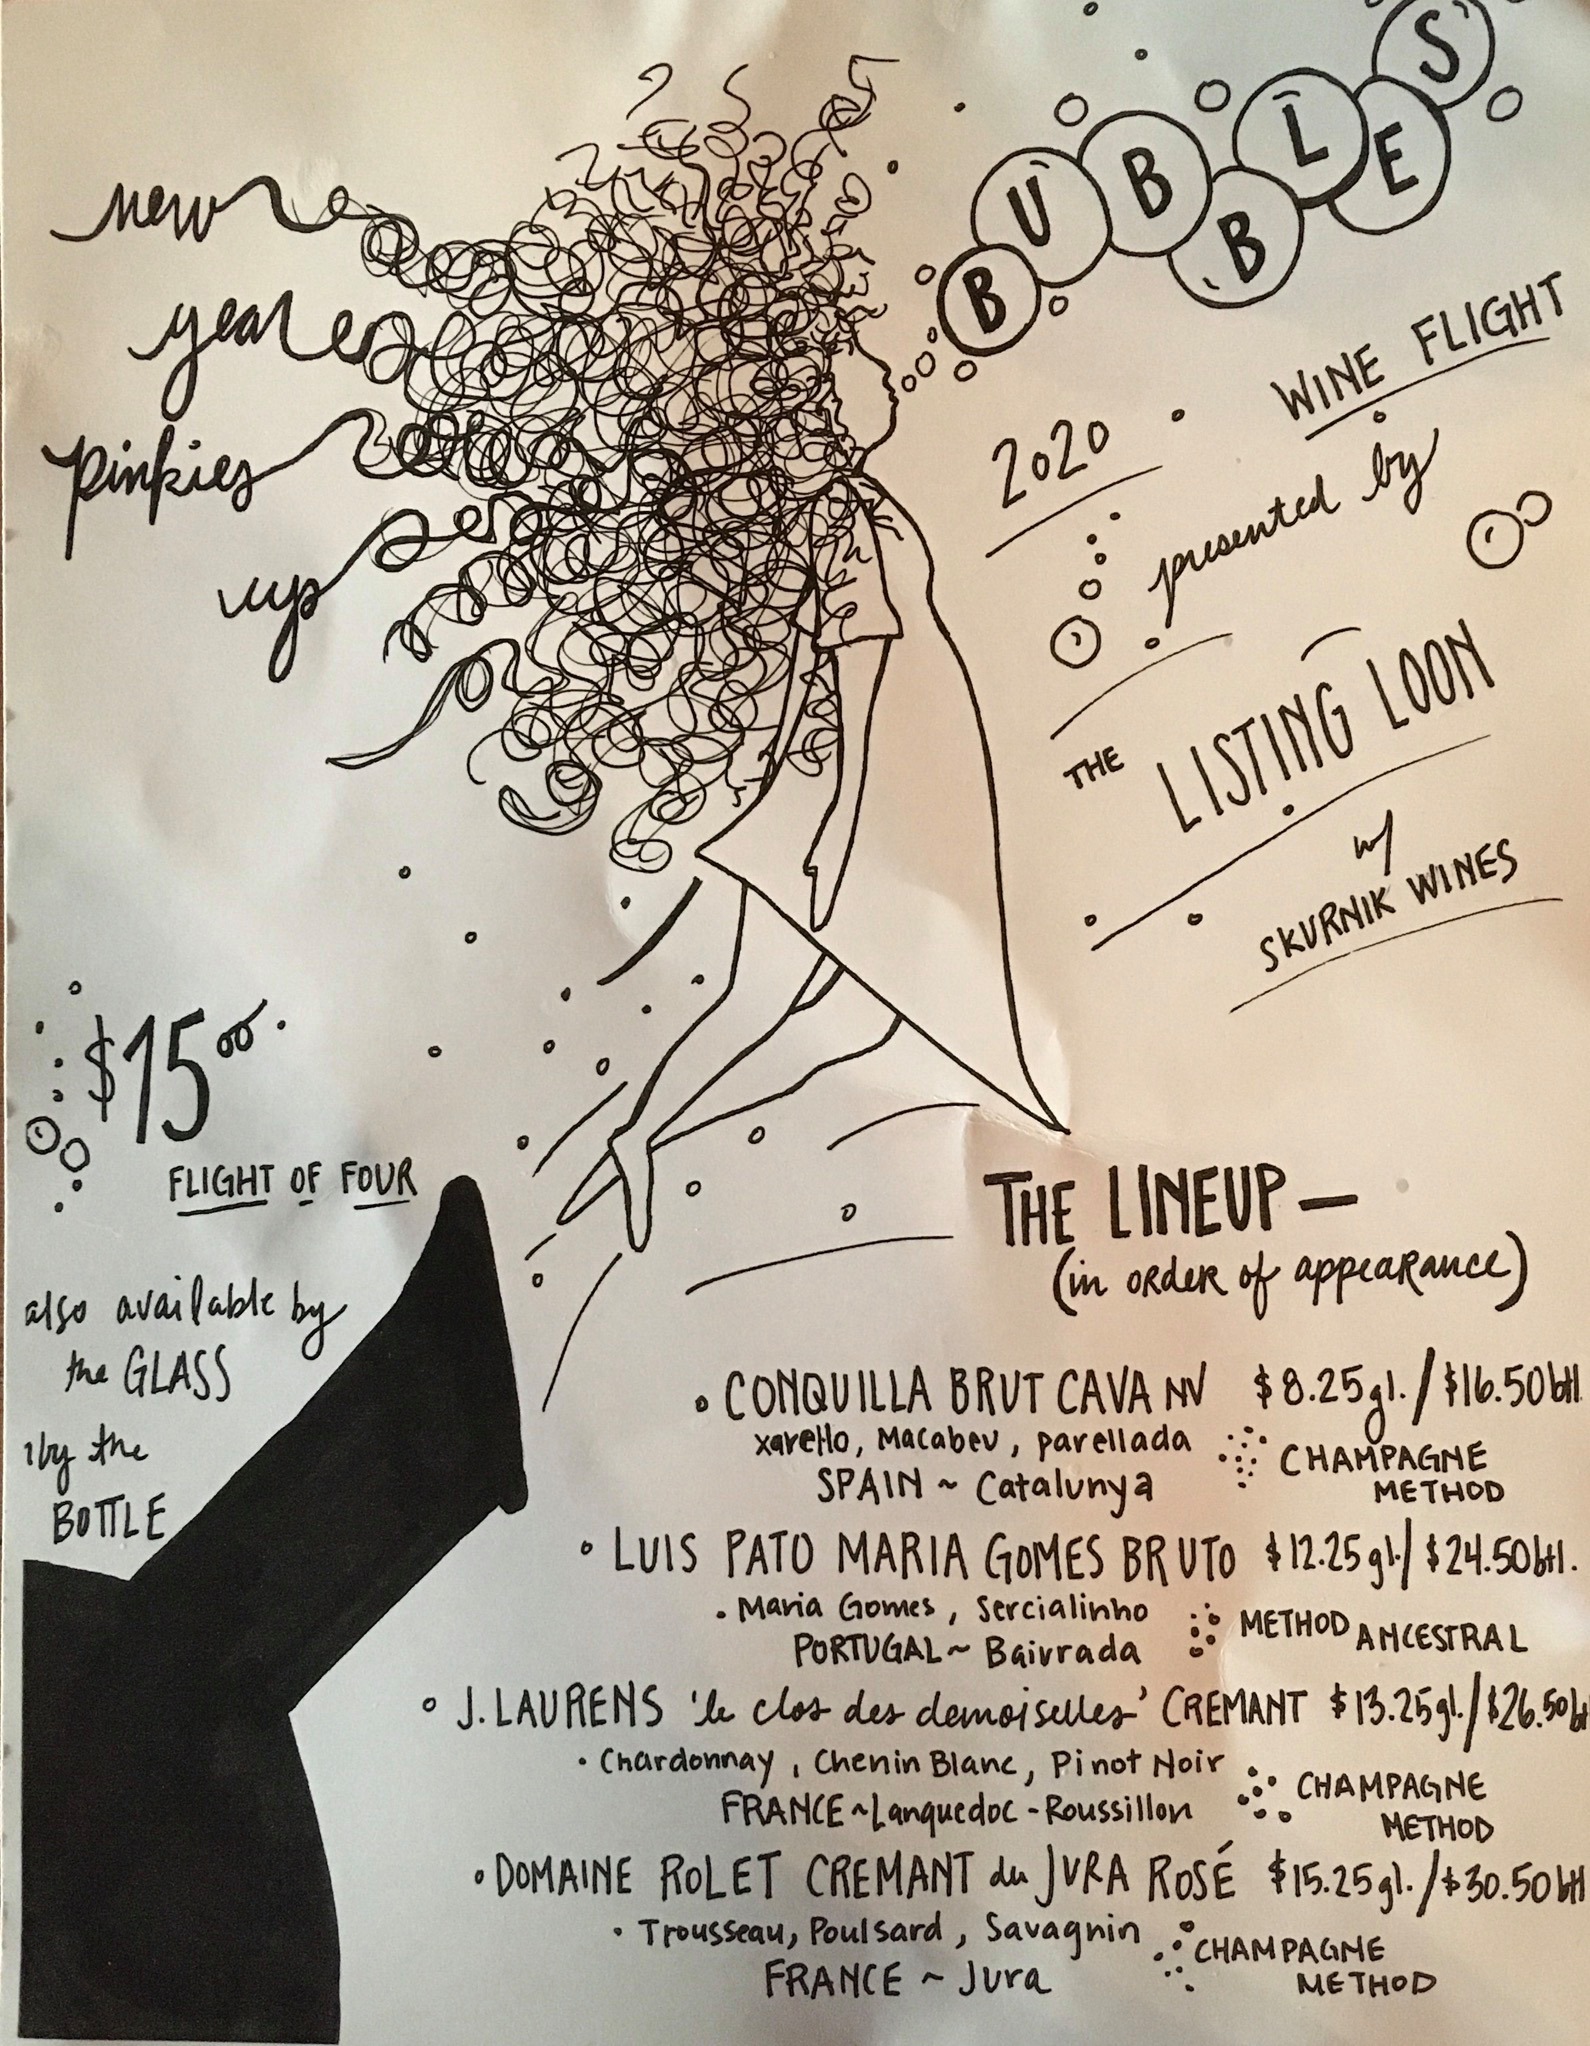 new
year
pinkies
up
BUBBLES
2020 · WINE FLIGHT
presented by
THE LISTING LOON
w/
SKURNIK WINES
$15.00
FLIGHT OF FOUR
also available by
the GLASS
by the
BOTTLE
THE LINEUP —
(in order of appearance)
CONQUILLA BRUT CAVA NV $8.25 gl. / $16.50 btl
xarello, Macabeu, parellada
SPAIN ~ Catalunya
CHAMPAGNE
METHOD
LUIS PATO MARIA GOMES BRUTO $12.25 gl. / $24.50 btl.
Maria Gomes, Sercialinho
PORTUGAL ~ Bairrada
METHOD ANCESTRAL
J. LAURENS 'le clos des demoiselles' CREMANT $13.25 gl. / $26.50 bt
Chardonnay, Chenin Blanc, Pinot Noir
FRANCE ~ Languedoc-Roussillon
CHAMPAGNE
METHOD
DOMAINE ROLET CREMANT du JURA ROSÉ $15.25 gl. / $30.50 btl
Trousseau, Poulsard, Savagnin
FRANCE ~ Jura
CHAMPAGNE
METHOD